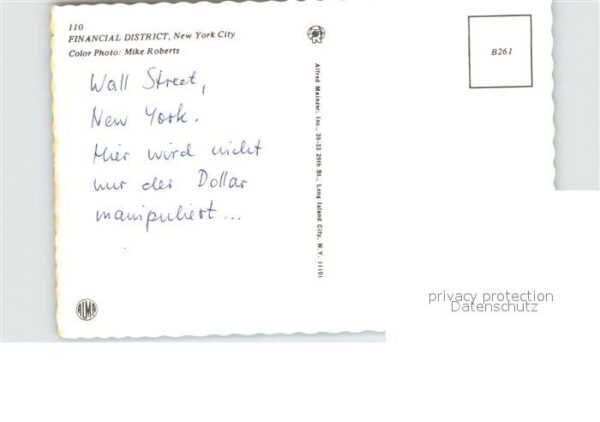 110
FINANCIAL DISTRICT, New York City
Color Photo: Mike Roberts
Wall Street,
New York.
Hier wird nicht
nur der Dollar
manipuliert...
Alfred Mainzer, Inc., 39-33 29th St., Long Island City, N.Y. 11101
B261
ALMA
privacy protection
Datenschutz